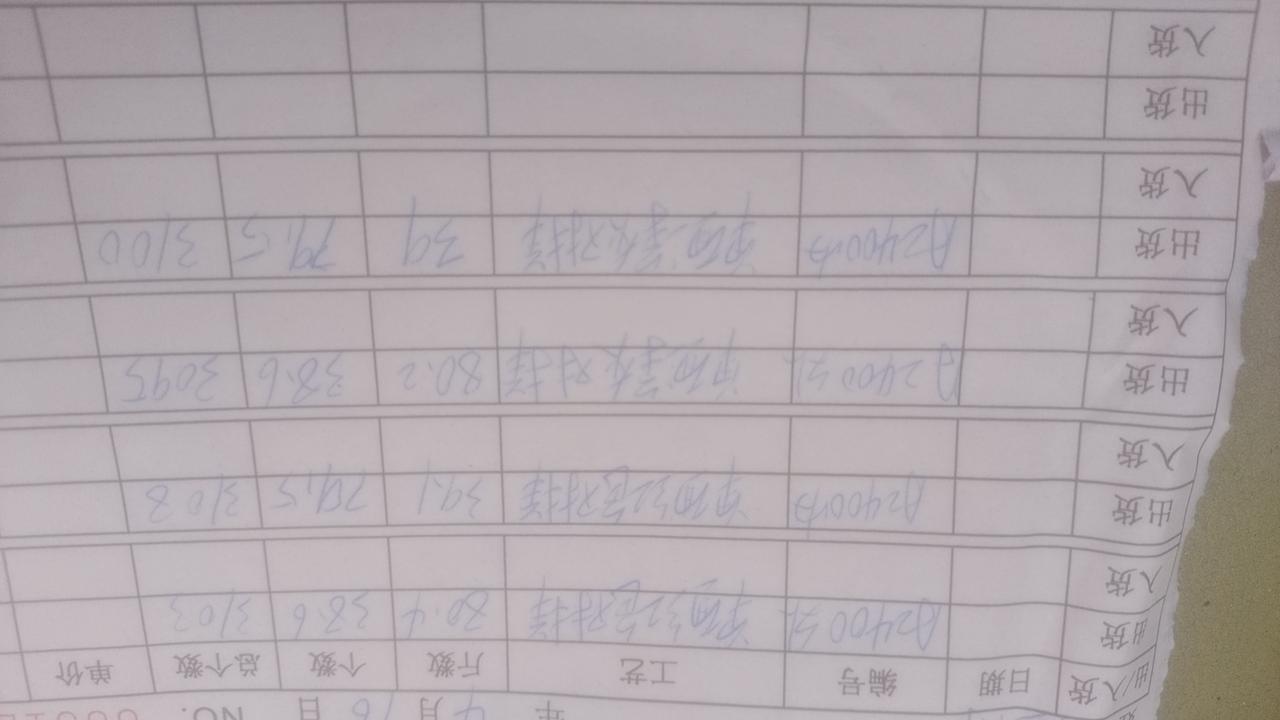 年 4月16日 NO.
出/入货 日期 编号 工艺 斤数 个数 总个数 单价
出货 A2400外 单面红色对样 80.4 38.6 3103
入货
出货 A2400内 单面红色对样 39.1 79.5 3108
入货
出货 A2400外 单面 对样 80.2 38.6 3095
入货
出货 A2400内 单面 对样 39 79.5 3100
入货
出货
入货